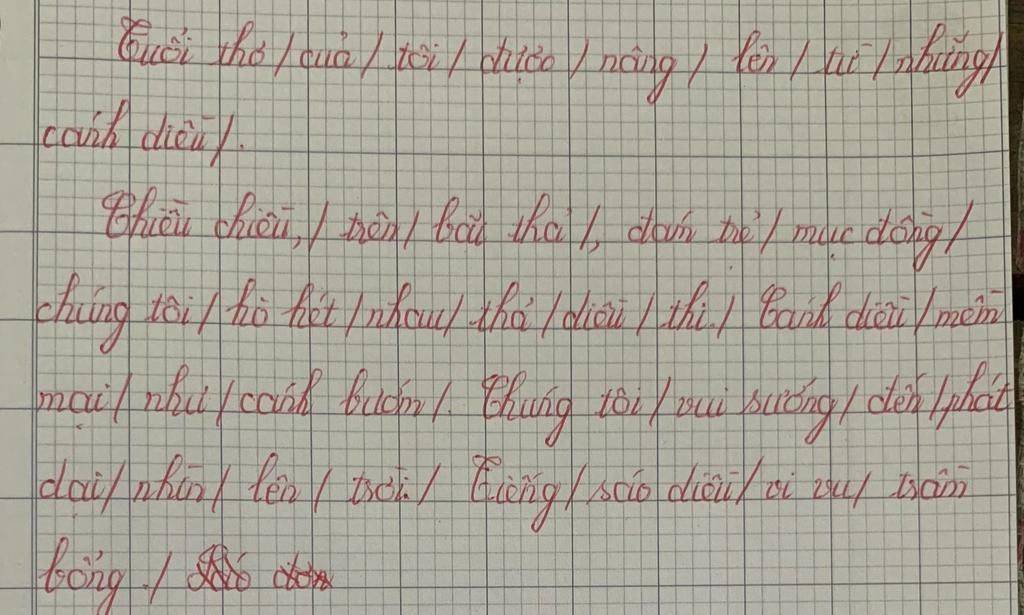 Tuổi thơ / của / tôi / được / nâng / lên / từ / những /
cánh diều /.
Chiều chiều, / trên / bãi thả /, đám trẻ / mục đồng /
chúng tôi / hò hét / nhau / thả / diều / thi. / Cánh diều / mềm
mại / như / cánh bướm /. Chúng tôi / vui sướng / đến / phát
dại / nhìn / lên / trời. / Tiếng / sáo diều / vi vu / trầm
bổng. /